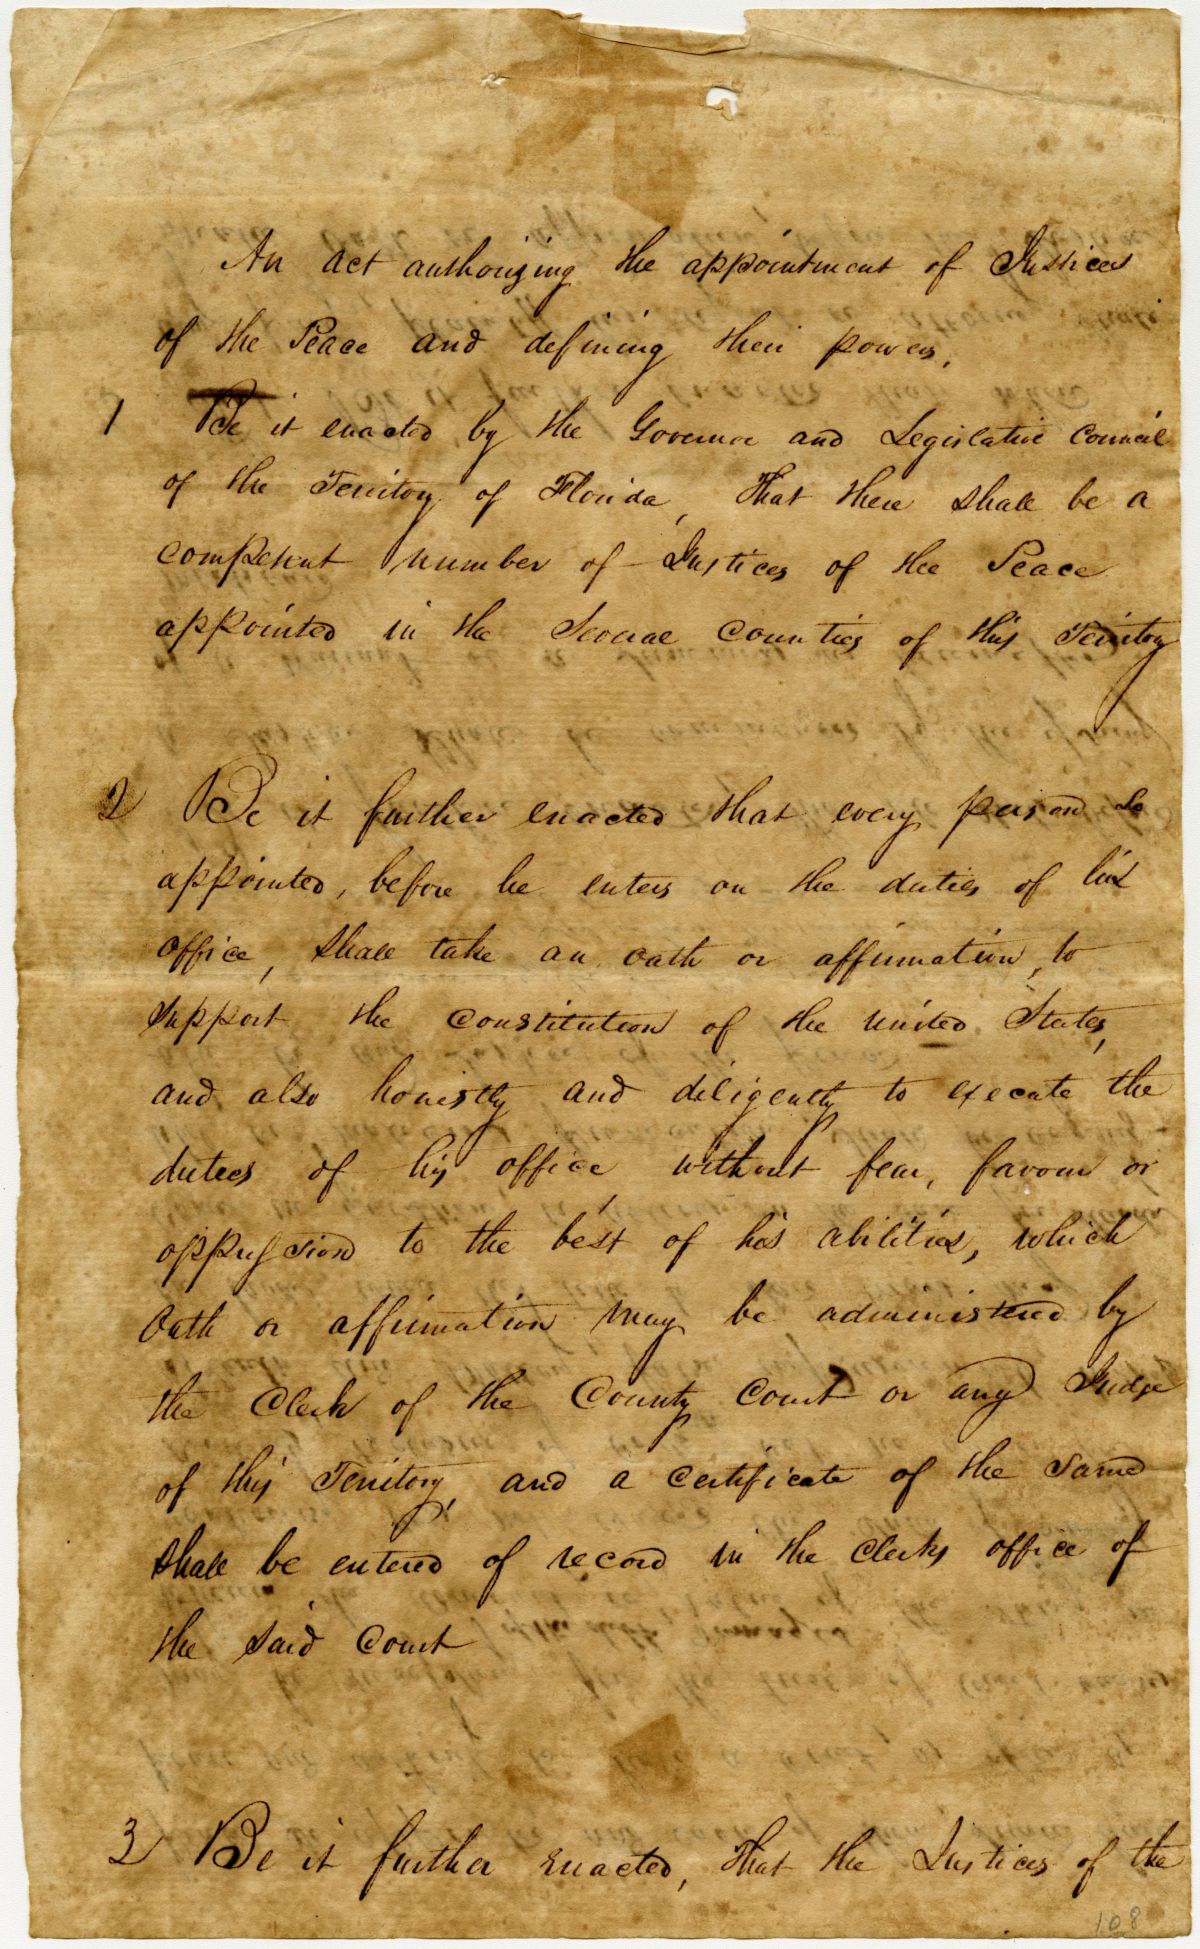 An act authorizing the appointment of Justices
of the Peace and defining their powers.
1 Be it enacted by the Governor and Legislative Council
of the Territory of Florida, That there shall be a
competent number of Justices of the Peace
appointed in the Several Counties of this Territory
2 Be it further enacted that every person so
appointed, before he enters on the duties of his
office, shall take an oath or affirmation, to
support the constitution of the United States,
and also honestly and diligently to execute the
duties of his office, without fear, favour or
oppression to the best of his abilities, which
Oath or affirmation may be administered by
the Clerk of the County Court or any Judge
of this Territory, and a certificate of the same
shall be entered of record in the clerks office of
the said Court
3 Be it further enacted, That the Justices of the
108